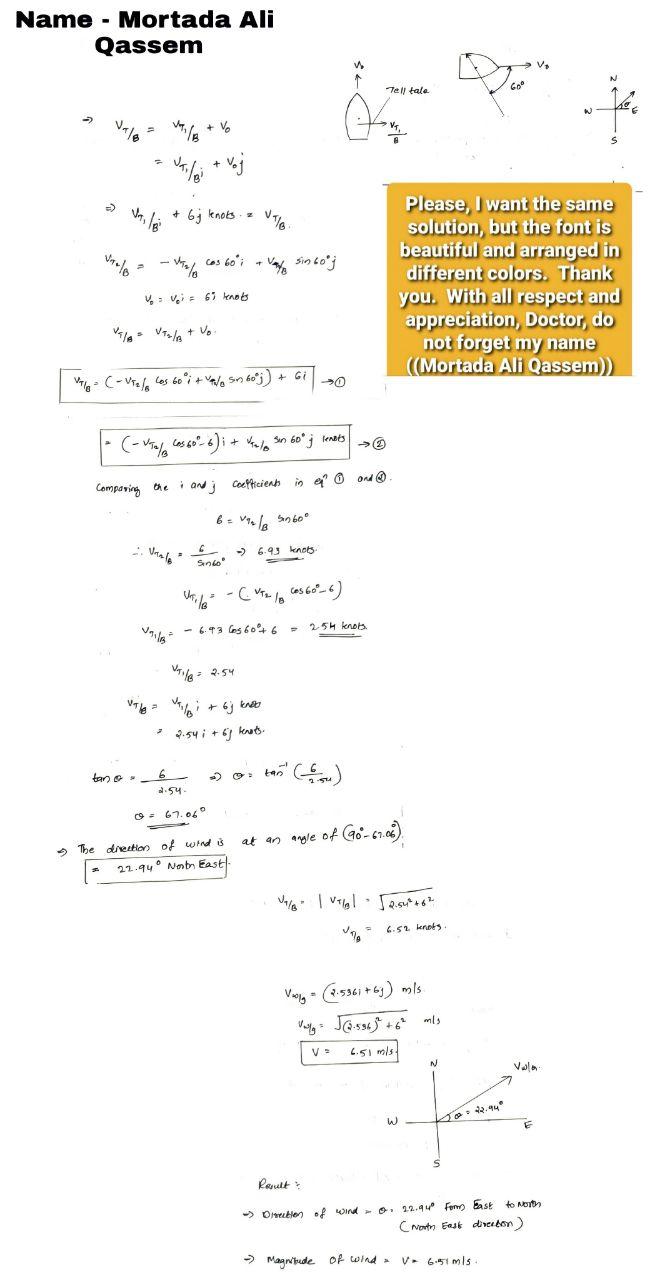 Name - Mortada Ali
Qassem
V₀
Tell tale
V_T₁/B
V₀
60°
N
W θ E
S
⇒ V_T/B = V_T₁/B + V₀
= V_T₁/B i + V₀j
⇒ V_T₁/B i + 6j knots = V_T/B.
V_T₂/B = - V_T₂/B cos 60° i + V_T₂/B sin 60° j
V₀ = V₀i = 6i knots
V_T/B = V_T₂/B + V₀.
V_T/B = (- V_T₂/B cos 60° i + V_T₂/B sin 60° j) + 6i → ①
= (- V_T₂/B cos 60° - 6) i + V_T₂/B sin 60° j knots → ②
Please, I want the same
solution, but the font is
beautiful and arranged in
different colors. Thank
you. With all respect and
appreciation, Doctor, do
not forget my name
((Mortada Ali Qassem))
Comparing the i and j coefficients in eqⁿ ① and ②.
6 = V_T₂/B sin 60°
∴ V_T₂/B = 6/sin 60° ⇒ 6.93 knots.
V_T₁/B = - (V_T₂/B cos 60° - 6)
V_T₁/B = - 6.93 cos 60° + 6 = 2.54 knots.
V_T₁/B = 2.54
V_T/B = V_T₁/B i + 6j knots
= 2.54 i + 6j knots.
tan θ = 6/2.54. ⇒ θ = tan⁻¹ (6/2.54)
θ = 67.06°
⇒ The direction of wind is at an angle of (90° - 67.06°).
= 22.94° North East.
V_T/B = |V_T/B| = √2.54² + 6²
V_T/B = 6.52 knots.
V_w/g = (2.536i + 6j) m/s.
V_w/g = √(2.536)² + 6² m/s
V = 6.51 m/s.
N
V_w/g.
θ = 22.94°
W E
S
Result :
→ Direction of wind = θ = 22.94° From East to North
(North East direction)
→ Magnitude of wind = V = 6.51 m/s.